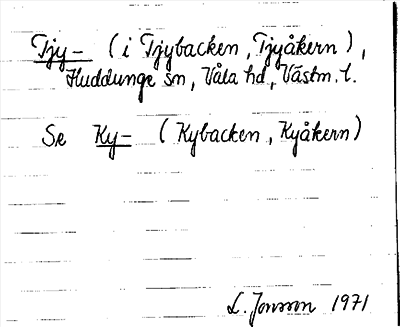 Tjy- (i Tjybacken, Tjyåkern),
Huddunge sn, Våla hd, Västm. l.
Se Ky- (Kybacken, Kyåkern)
L. Jonson 1971